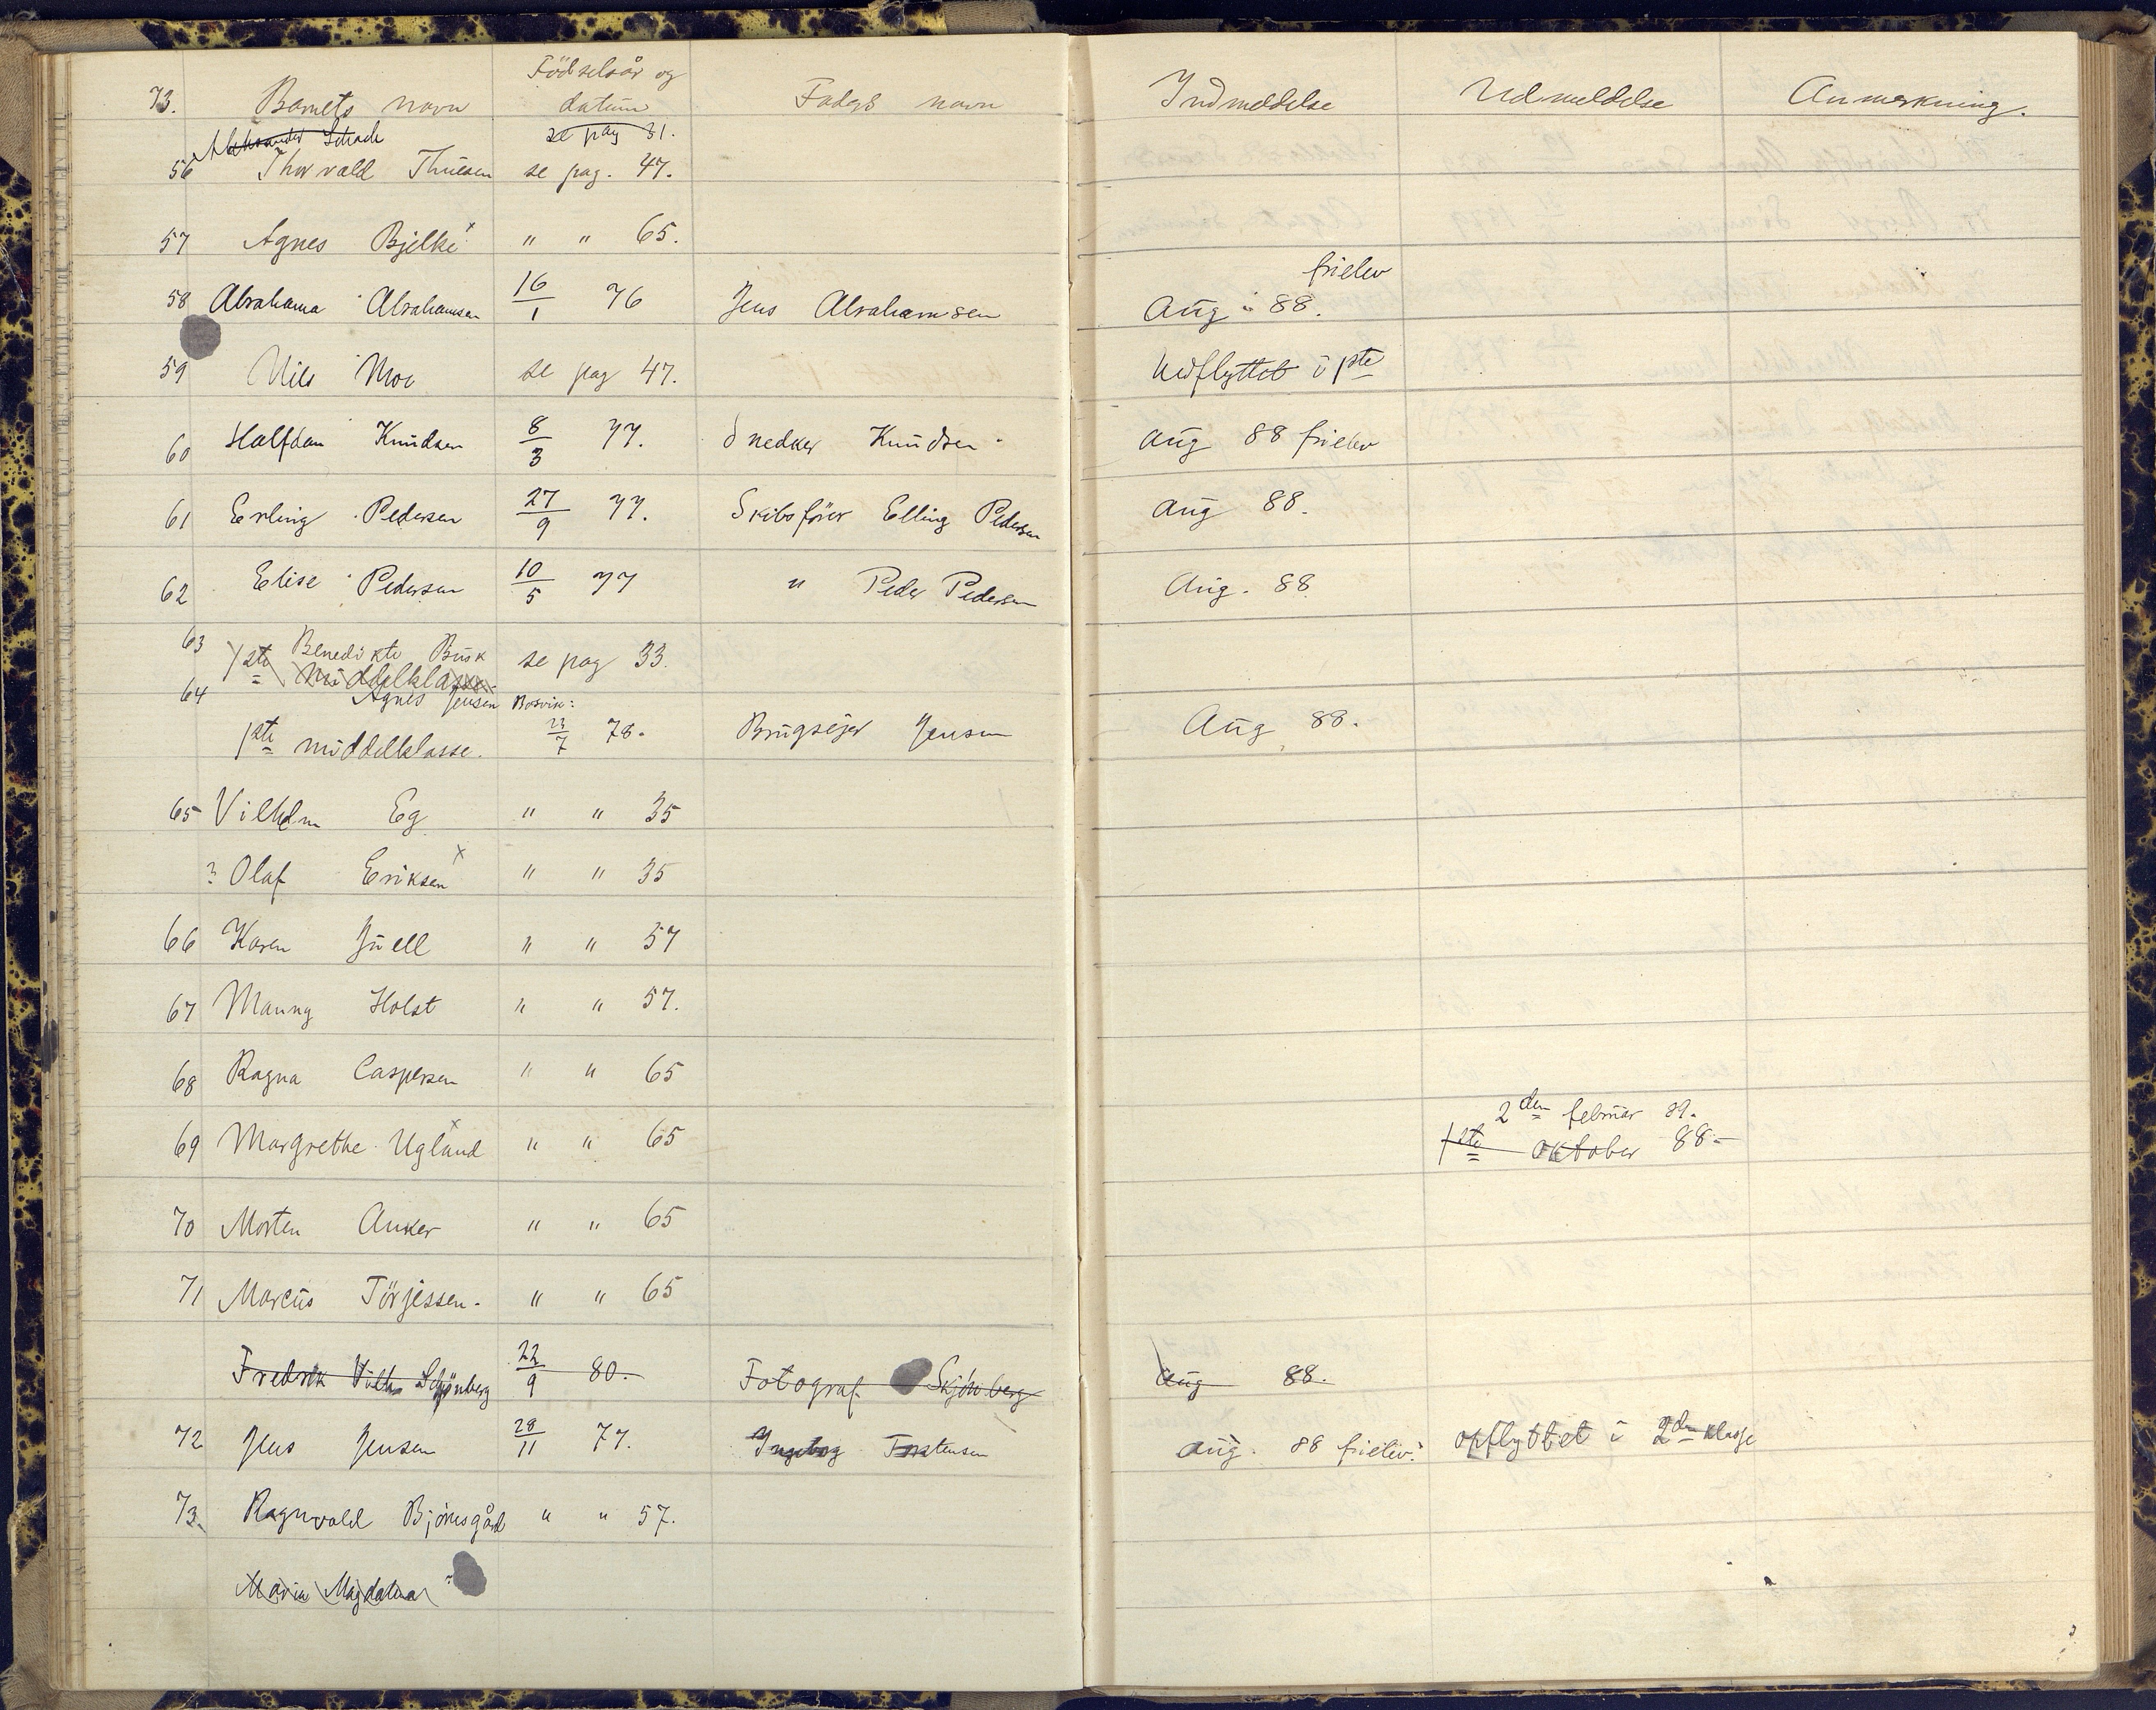 73. Barnets navn Födselsår og datum Faders navn Indmeldelse Udmeldelse Anmerkning.
Schade se pag 31.
56 Thorvald Thuesen se pag. 47.
57 Agnes Bjelke x " " 65.
frielev
58 Abrahama Abrahamsen 16/1 76 Jens Abrahamsen Aug 88.
59 Nils Moe se pag 47. Nedflyttet i 1ste
60 Halfdan Knudsen 8/3 77. Snedker Knudsen Aug 88 frielev
61 Erling Pedersen 27/9 77. Skibsfører Elling Pedersen Aug 88.
62 Elise Pedersen 10/5 77 " Peder Pedersen Aug. 88
63 Benedikte Busk se pag 33.
1ste Middelklasse
64 Agnes Jensen Bosvik:
1ste middelklasse. 23/7 78. Brugseier Jensen Aug 88.
65 Vilhelm Eg " " 35
? Olaf Eriksen x " " 35
66 Karen Juell " " 57
67 Manny Holst " " 57.
68 Ragna Caspersen " " 65
2den februar 89.
69 Margrethe Ugland x " " 65 1ste Oktober 88
70 Morten Anker " " 65
71 Marcus Törjessen. " " 65
Fredrik Vilh. Schjönberg 22/9 80. Fotograf Skjönberg Aug 88.
72 Jens Jensen 28/11 77. Ingebog Torstensen Aug. 88 frielev. opflyttet i 2den klasse
73. Ragnvald Bjørnsgård " " 57.
Marie Magdalena